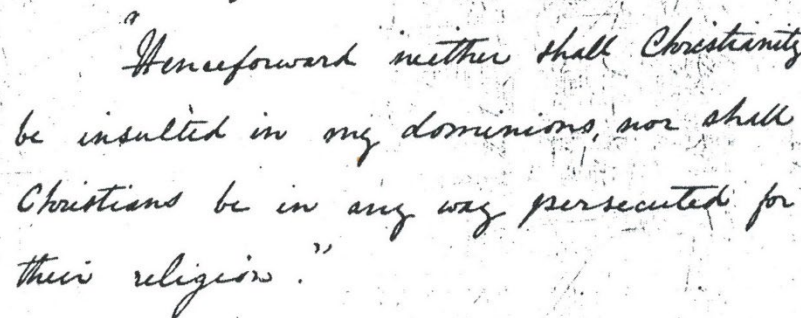 "Henceforward neither shall Christianity
be insulted in my dominions, nor shall
Christians be in any way persecuted for
their religion."